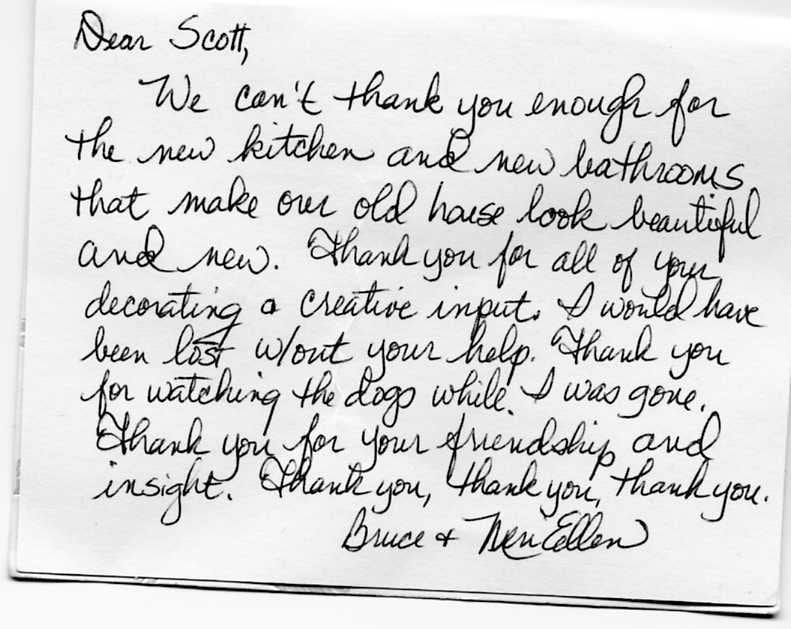 Dear Scott,
We can't thank you enough for
the new kitchen and new bathrooms
that make our old house look beautiful
and new. Thank you for all of your
decorating & creative input. I would have
been lost w/out your help. Thank you
for watching the dogs while I was gone.
Thank you for your friendship and
insight. Thank you, thank you, thank you.
Bruce +